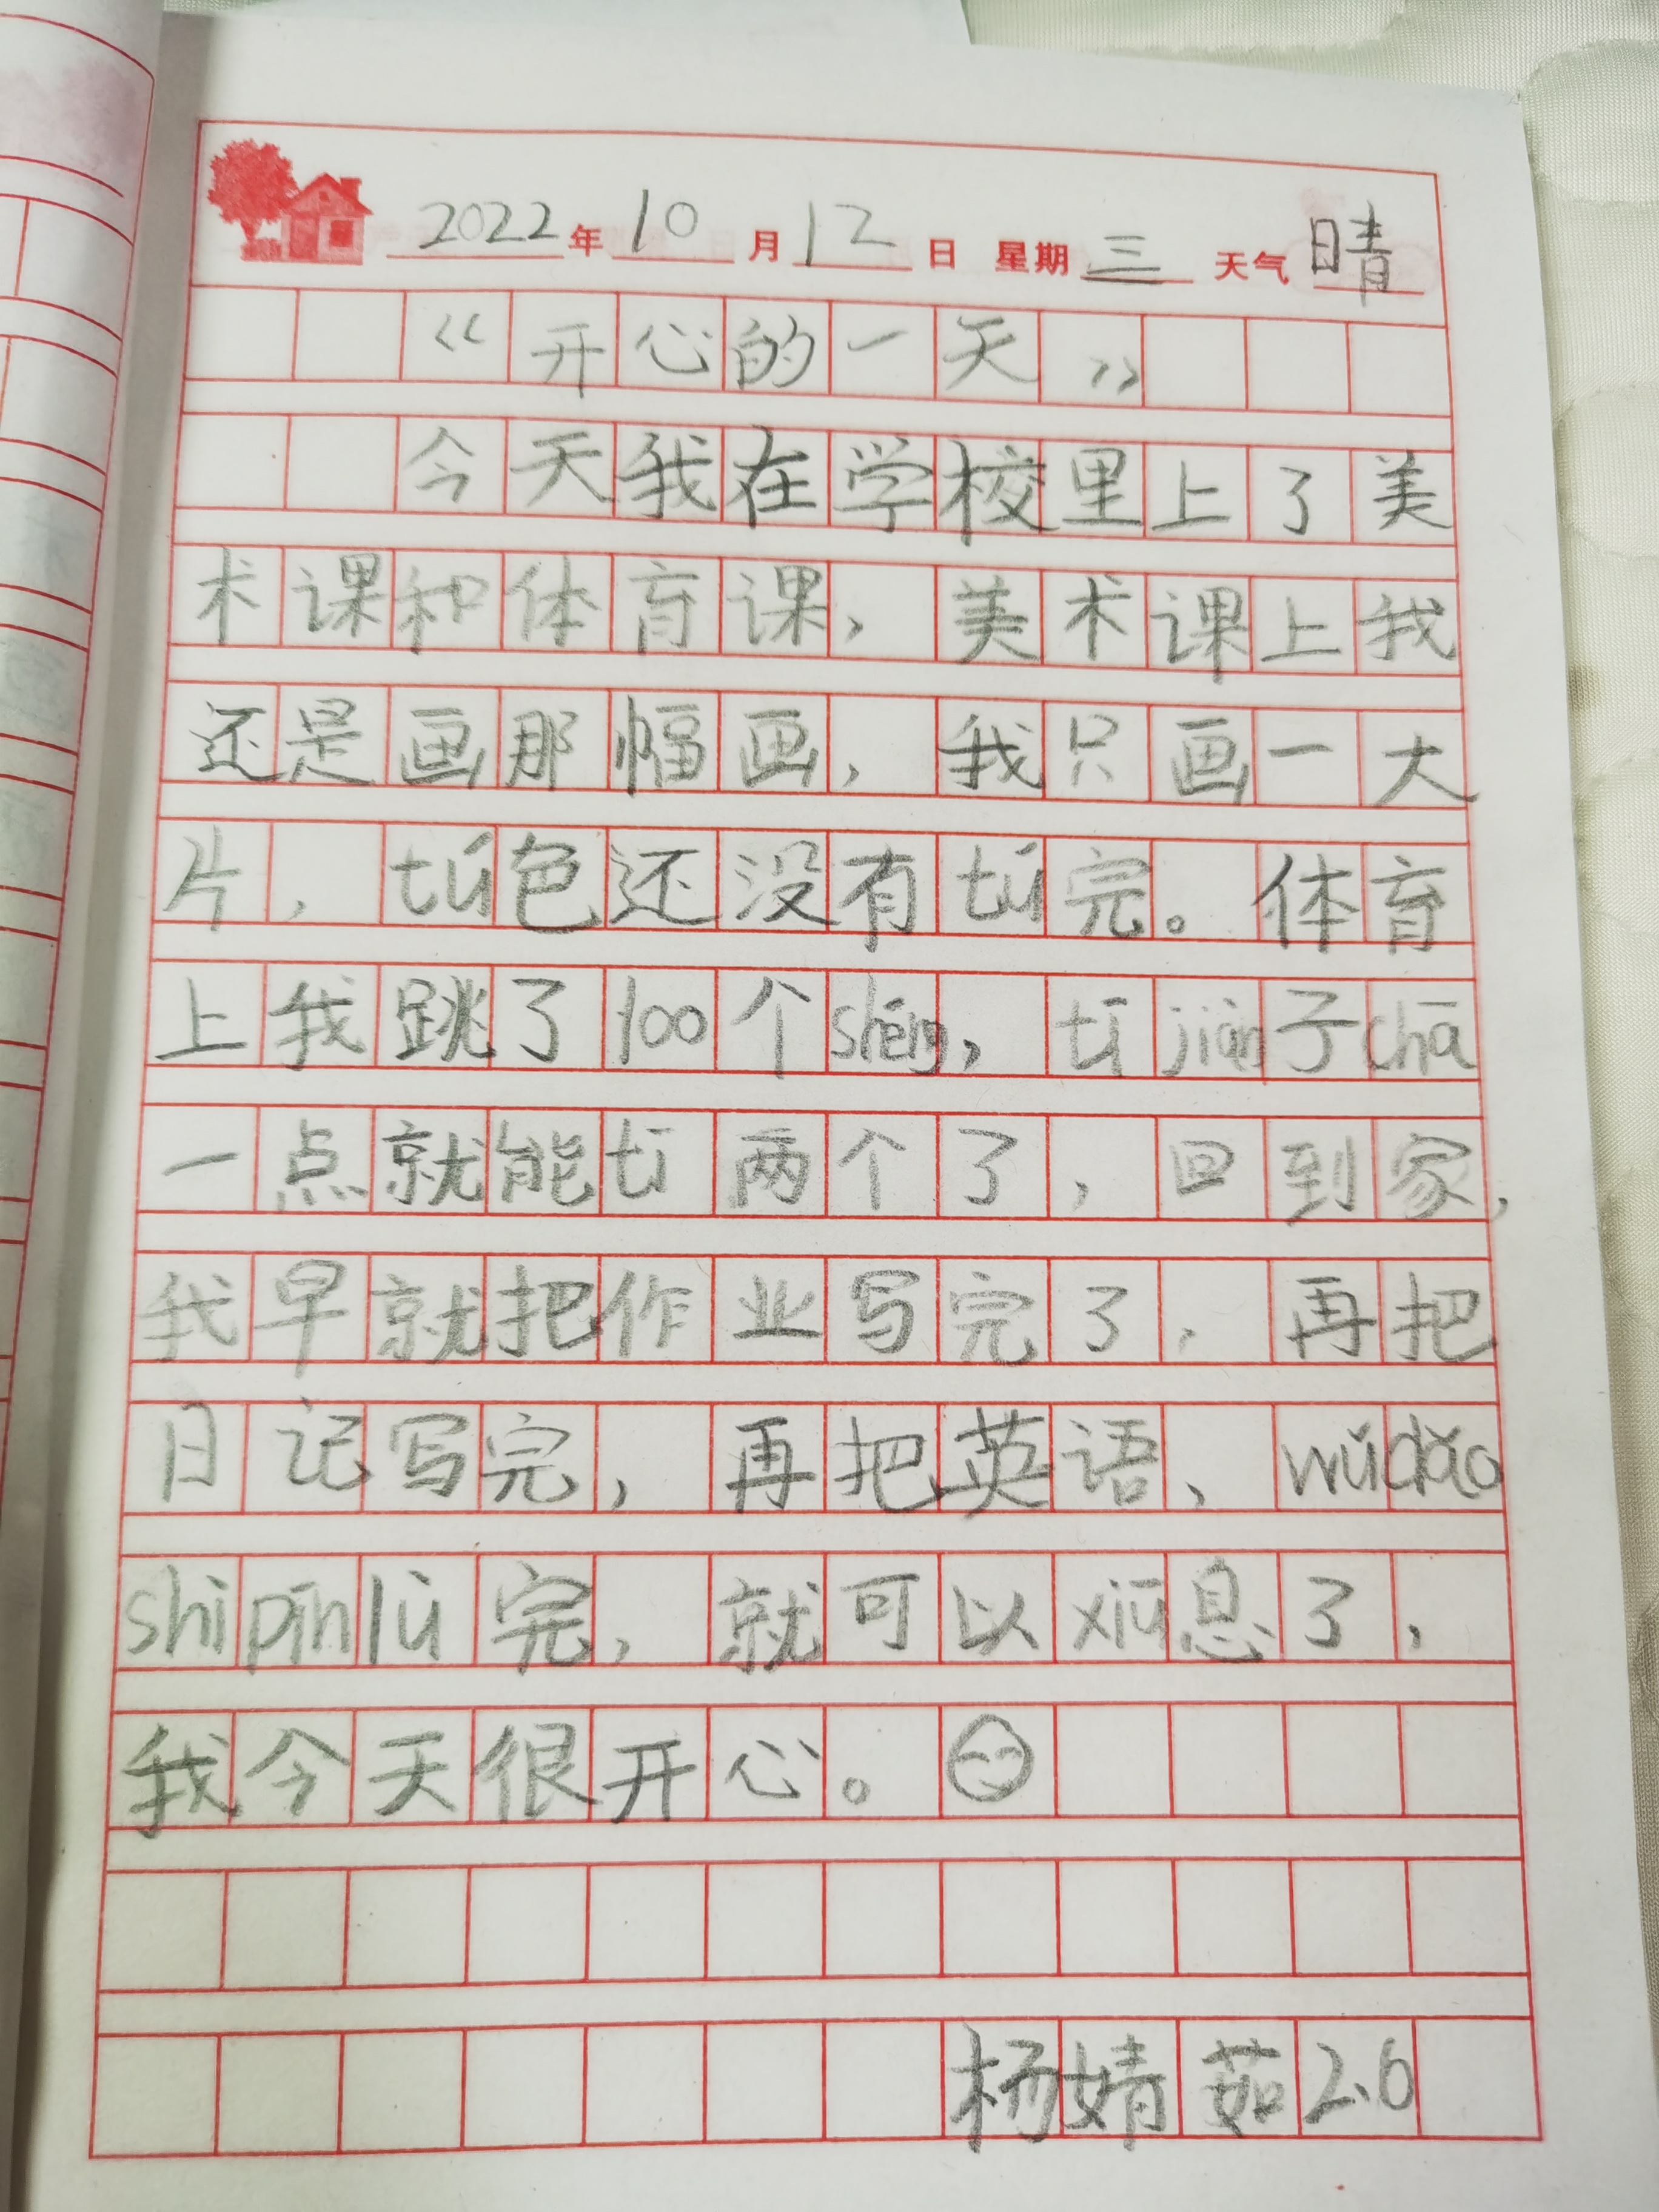 2022年10月12日 星期三 天气晴
《开心的一天》
今天我在学校里上了美
术课和体育课,美术课上我
还是画那幅画,我只画一大
片,tú色还没有tú完。体育
上我跳了100个shéng,tī jiàn子chā
一点就能tī两个了,回到家,
我早就把作业写完了,再把
日记写完,再把英语、wǔdǎo
shìpínlù完,就可以xiū息了,
我今天很开心。
杨婧茹2.6